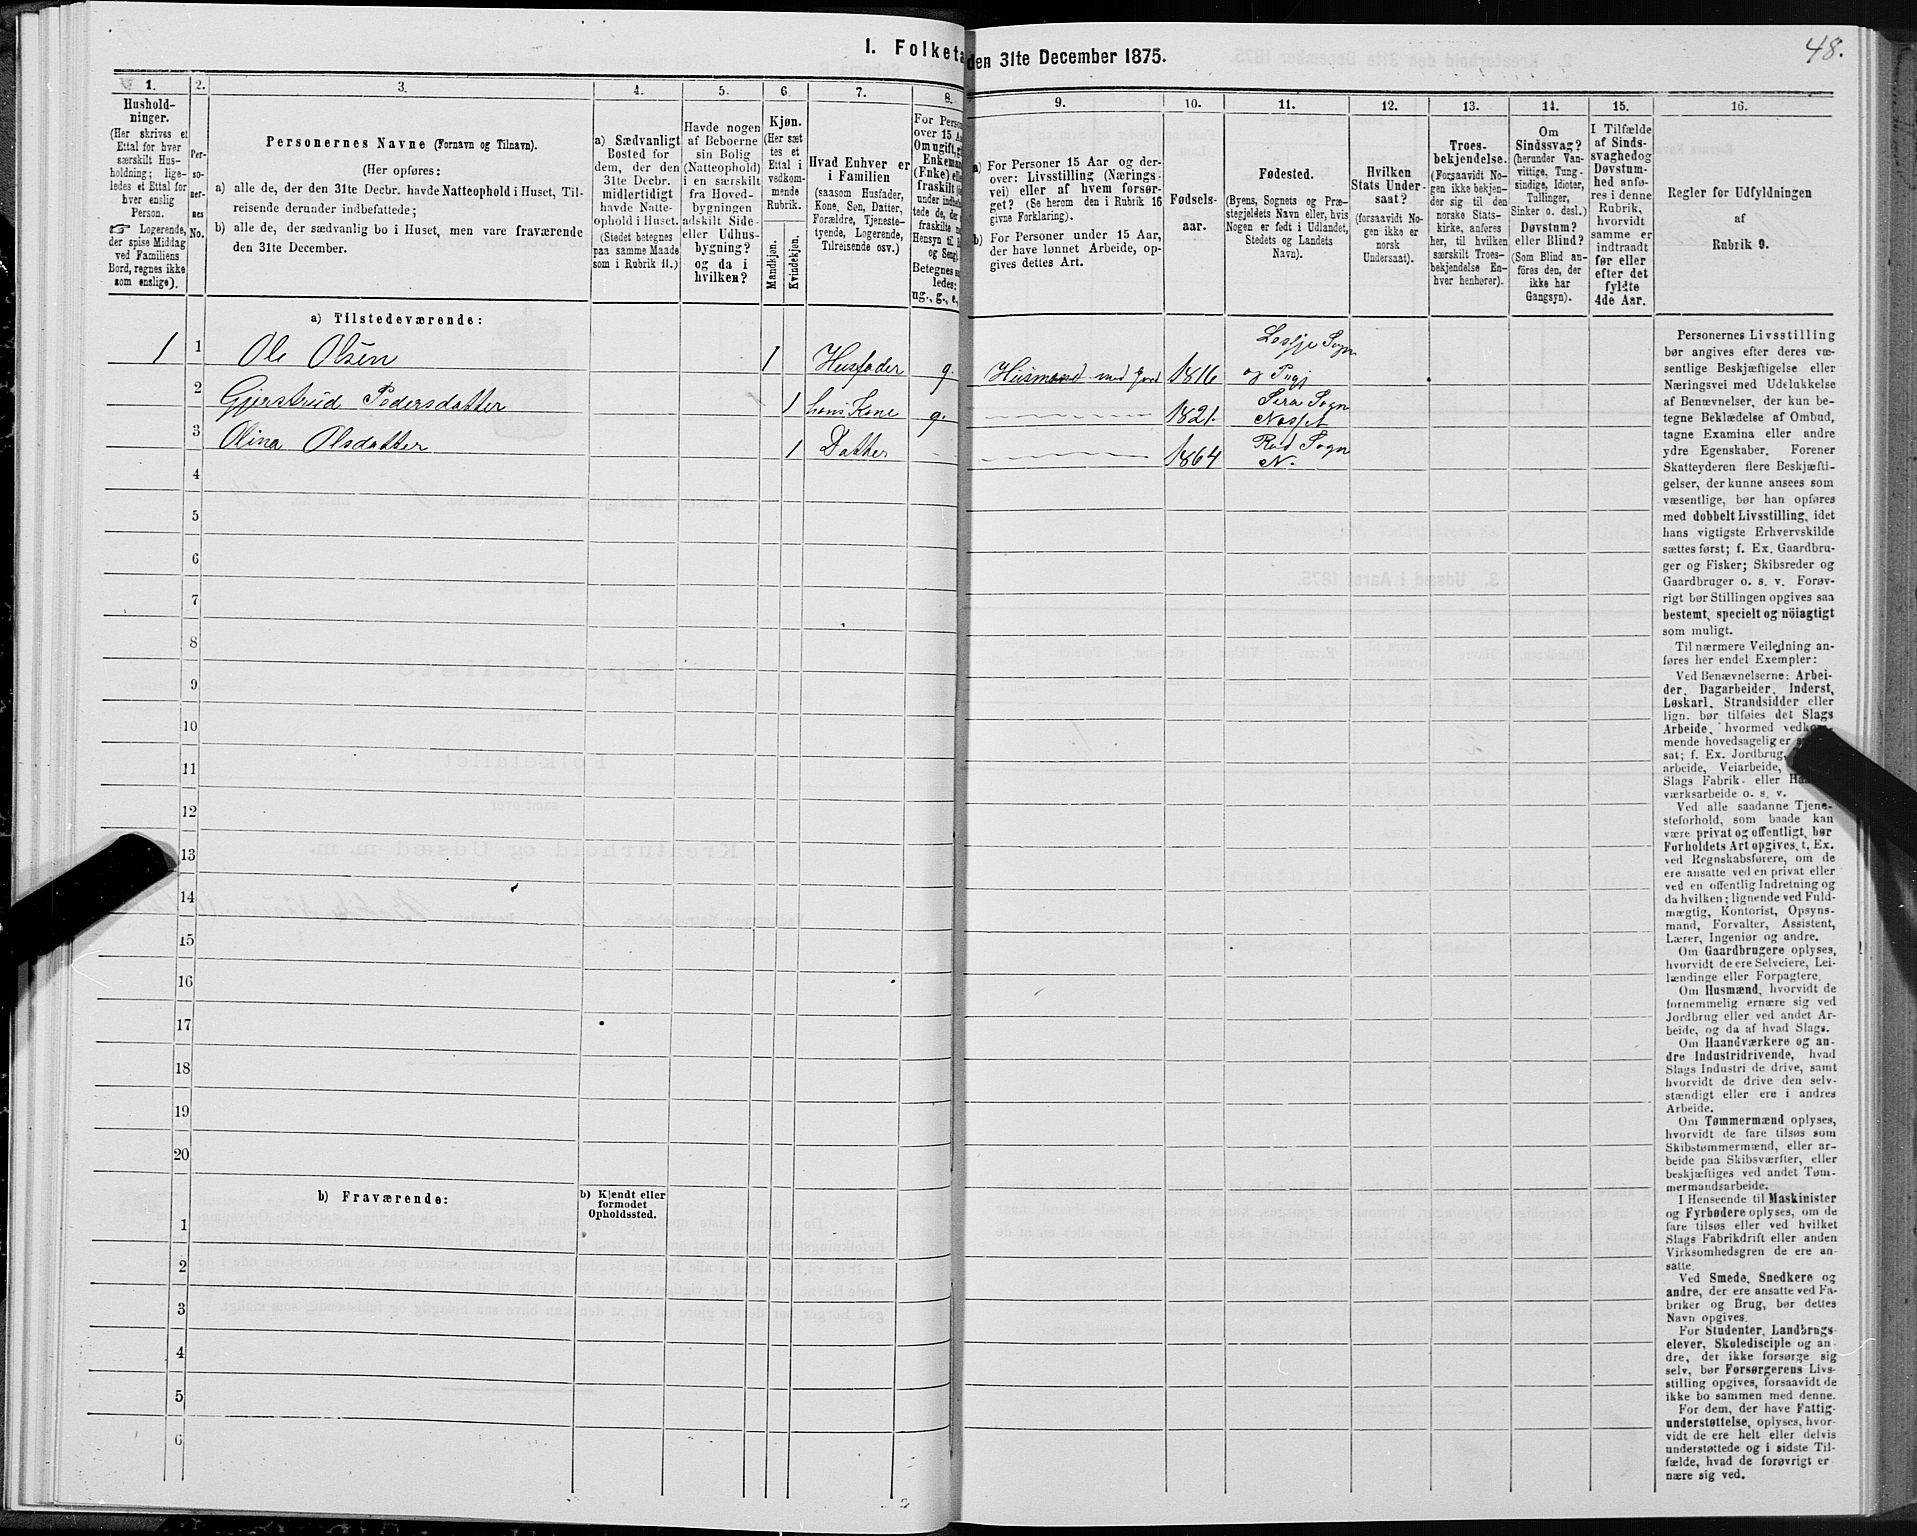 48.
I. Folketa
den 31te December 1875.
1.
2.
3.
4.
5.
6.
7.
8.
9.
10.
11.
12.
13.
14.
15.
16.
Hushold-
ninger.
(Her skrives et
Ettal for hver
særskilt Hus-
holdning; lige-
ledes et Ettal for
hver enslig
Person.
☞ Logerende,
der spise Middag
ved Familiens
Bord, regnes ikke
som enslige).
Per-
so-
ner-
nes
No.
Personernes Navne (Fornavn og Tilnavn).
(Her opføres:
a) alle de, der den 31te Decbr. havde Natteophold i Huset, Til-
reisende derunder indbefattede;
b) alle de, der sædvanlig bo i Huset, men vare fraværende
den 31te December.
a) Sædvanligt
Bosted for
dem, der den
31te Decbr.
midlertidigt
havde Natte-
ophold i Huset.
(Stedet betegnes
paa samme Maade
som i Rubrik 11.)
Havde nogen
af Beboerne
sin Bolig
(Natteophold)
i en særskilt
fra Hoved-
bygningen
adskilt Side-
eller Udhus-
bygning?
og da i
hvilken?
Kjøn.
(Her sæt
tes et
Ettal i
vedkom-
mende
Rubrik.
Mandkjøn.
Kvindekjøn.
Hvad Enhver er
i Familien
(saasom Husfader,
Kone, Søn, Datter,
Forældre, Tjeneste-
tyende, Logerende,
Tilreisende osv.)
For Person
over 15 Aa
Om ugift, g
Enkeman
(Enke) ell
fraskilt (
under indbe
tede de, der
fraskilte
Hensyn til
og Seng
Betegnes s
ledes:
ug., g., e,
a) For Personer 15 Aar og der-
over: Livsstilling (Nærings-
vei) eller af hvem forsør-
get? (Se herom den i Rubrik 16
givne Forklaring).
b) For Personer under 15 Aar,
der have lønnet Arbeide, op-
gives dettes Art.
Fødsels-
aar.
Fødested.
(Byens, Sognets og Præ-
stegjeldets Navn eller, hvis
Nogen er født i Udlandet,
Stedets og Landets
Navn).
Hvilken
Stats Under-
saat?
(forsaavidt No-
gen ikke er
norsk
Undersaat).
Troes-
bekjendelse.
(Forsaavidt No-
gen ikke bekjen-
der sig til den
norske Stats-
kirke, anføres
her, til hvilken
særskilt Troes-
bekjendelse En-
hver henhører).
Om
Sindssvag?
(herunder Van-
vittige, Tung-
sindige, Idioter,
Tullinger,
Sinker o. desl.)
Døvstum?
eller Blind?
(Som Blind an-
føres den, der
ikke har
Gangsyn).
I Tilfælde
af Sinds-
svaghed og
Døvstum-
hed anfø-
res i denne
Rubrik,
hvorvidt
samme er
indtraadt
før eller
efter det
fyldte
4de Aar.
Regler for Udfyldningen
af
Rubrik 9.
a) Tilstedeværende:
1 1 Ole Olsen 1 Husfader g. Husmand med Jord 1816 Lesje Sogn
og Pngj
2 Gjertrud Pedersdatter 1 hans Kone g. 1821. Sira Sogn
Nesset
3 Olina Olsdatter 1 Datter 1864 Rød Sogn
N.
4
5
6
7
8
9
10
11
12
13
14
15
16
17
18
19
20
b) Fraværende:
b) Kjendt eller
formodet
Opholdssted.
1
2
3
4
5
6
Personernes Livsstilling
bør angives efter deres væ-
sentlige Beskjæftigelse eller
Næringsvei med Udelukkelse
af Benævnelser, der kun be-
tegne Beklædelse af Ombud,
tagne Examina eller andre
ydre Egenskaber. Forener
Skatteyderen flere Beskjæfti-
gelser, der kunne ansees som
væsentlige, bør han opføres
med dobbelt Livsstilling, idet
hans vigtigste Erhvervskilde
sættes først; f. Ex. Gaardbru-
ger og Fisker; Skibsreder og
Gaardbruger o. s. v. Forøv-
rigt bør Stillingen opgives saa
bestemt, specielt og nöiagtigt
som muligt.
Til nærmere Veiledning an-
føres her endel Exempler:
Ved Benævnelserne: Arbei-
der, Dagarbeider, Inderst,
Løskarl, Strandsidder eller
lign. bør tilføies det Slags
Arbeide, hvormed vedkom-
mende hovedsagelig er
sat; f. Ex. Jordbrug,
arbeide, Veiarbeide,
Slags Fabrik- eller Haand-
værksarbeide o. s. v.
Ved alle saadanne Tjene-
steforhold, som baade kan
være privat og offentligt, bør
Forholdets Art opgives, t. Ex.
ved Regnskabsførere, om de
ere ansatte ved en privat eller
ved en offentlig Indretning og
da hvilken; lignende ved Fuld-
mægtig, Kontorist, Opsyns-
mand, Forvalter, Assistent,
Lærer, Ingeniør og andre.
Om Gaardbrugere oplyses,
hvorvidt de ere Selveiere, Lei-
lændinge eller Forpagtere.
Om Husmænd, hvorvidt de
fornemmelig ernære sig ved
Jordbrug eller ved andet Ar-
beide, og da af hvad Slags.
Om Haandværkere og an-
dre Industridrivende, hvad
Slags Industri de drive, samt
hvorvidt de drive den selv-
stændigt eller ere i andres
Arbeide.
Om Tømmermænd oplyses,
hvorvidt de fare tilsøs som
Skibstømmermænd, eller ar-
beide paa Skibsværfter, eller
beskjæftiges ved andet Tøm-
mermandsarbeide.
I Henseende til Maskinister
og Fyrbødere oplyses, om de
fare tilsøs eller ved hvilket
Slags Fabrikdrift eller anden
Virksomhedsgren de ere an-
satte.
Ved Smede, Snedkere og
andre, der ere ansatte ved Fa-
briker og Brug, bør dettes
Navn opgives.
For Studenter, Landbrugs-
elever, Skoledisciple og an-
dre, der ikke forsørge sig
selv, bør Forsørgerens Livs-
stilling opgives, forsaavidt de
ikke bo sammen med denne.
For dem, der have Fattig-
understøttelse, oplyses, hvor-
vidt de ere helt eller delvis
understøttede og i sidste Til-
fælde, hvad de forøvrigt er-
nære sig ved.